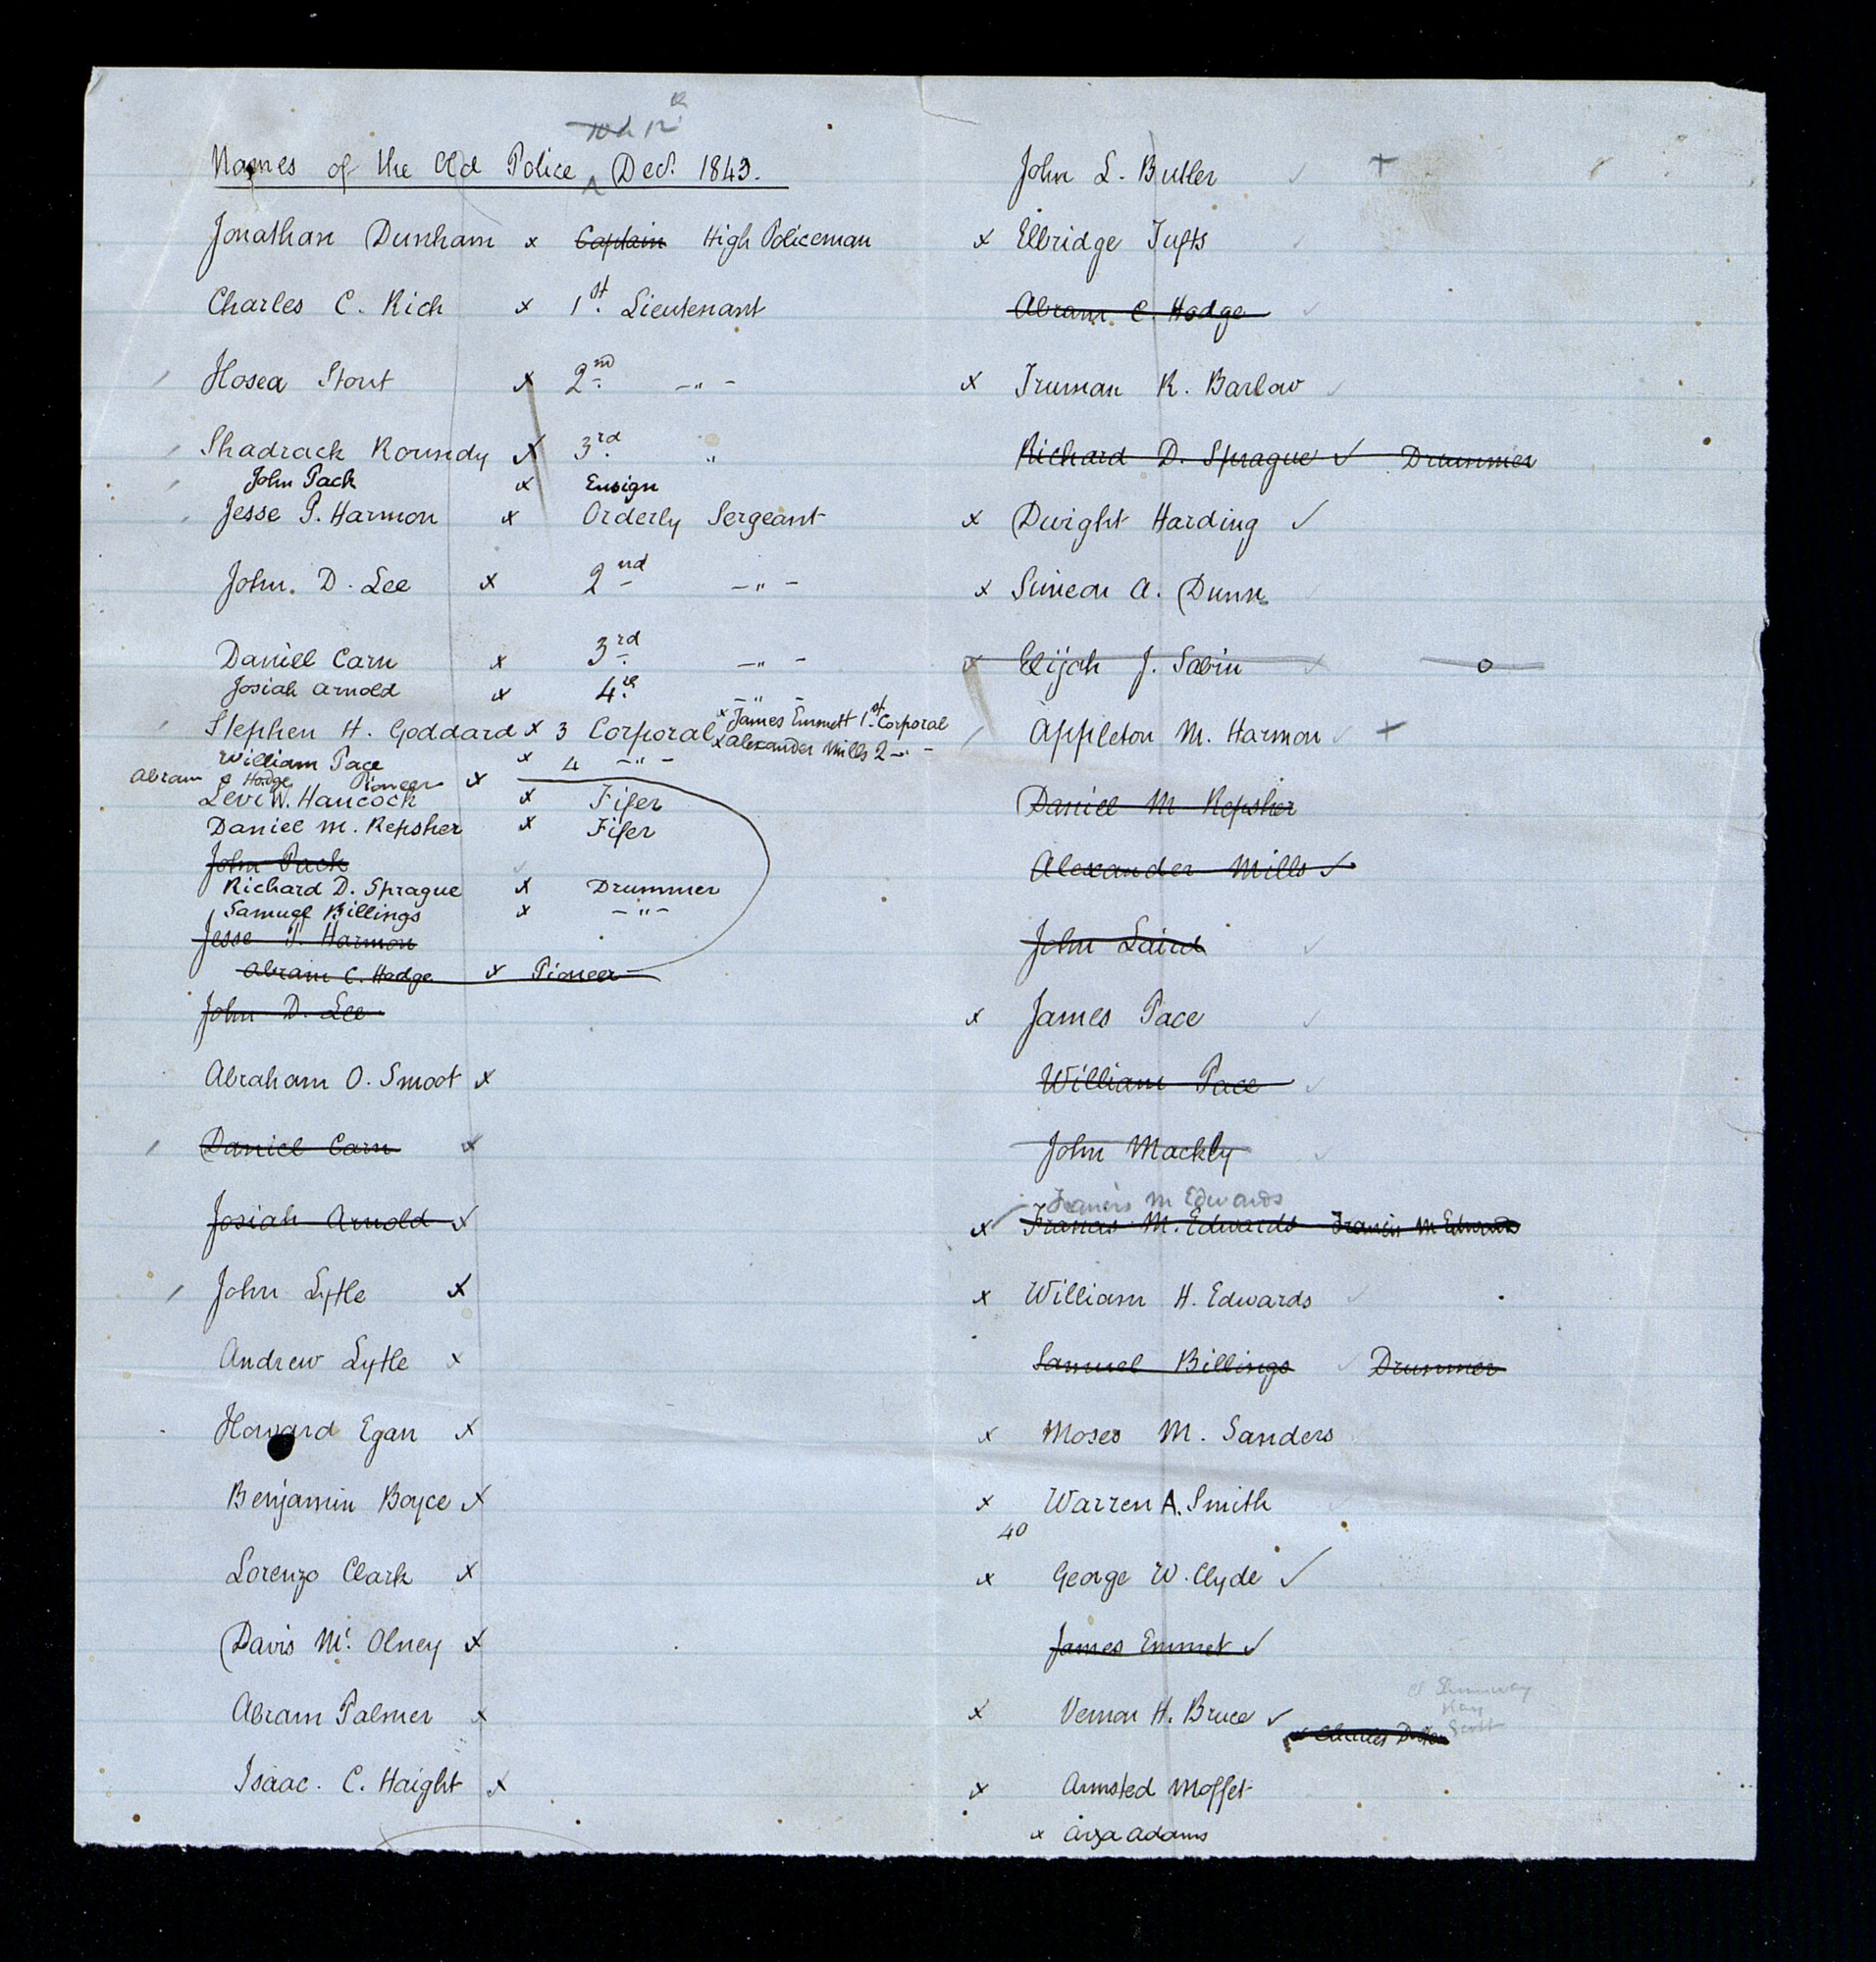 12th
Names of the Old Police ^ Dec. 1843.
Jonathan Dunham x Captain High Policeman
Charles C. Rich x 1st. Lieutenant
Hosea Stout x 2nd. -"-
Shadrack Roundy x 3rd. "
John Pack x Ensign
Jesse P. Harmon x Orderly Sergeant
John. D. Lee x 2nd -"-
Daniel Carn x 3rd. -"-
Josiah Arnold x 4th. -"-
x James Emmett 1st. Corporal
Stephen H. Goddard x 3 Corporal x Alexander Mills 2 -"-
William Pace x 4 -"-
Abram C Hodge Pioneer x
Levi W. Hancock x Fifer
Daniel M. Repsher x Fifer
John Pack
Richard D. Sprague x Drummer
Samuel Billings x -"-
Jesse P. Harmon
Abram C. Hodge x Pioneer
John D. Lee
Abraham O. Smoot x
Daniel Carn x
Josiah Arnold x
John Lytle x
Andrew Lytle x
Howard Egan x
Benjamin Boyce x
Lorenzo Clark x
Davis Mc. Olney x
Abram Palmer x
Isaac. C. Haight x
John L. Butler ✓ +
x Elbridge Tufts ✓
Abram C. Hodge ✓
x Truman R. Barlow ✓
Richard D. Sprague ✓ Drummer
x Dwight Harding ✓
x Simeon A. Dunn ✓
x Elijah J. Sabin ✓ o
Appleton M. Harmon ✓ +
Daniel M Repsher
Alexander Mills ✓
John Laird ✓
x James Pace ✓
William Pace ✓
John Mackly ✓
Francis M Edwards
x Francis M. Edwards Francis M Edwards
x William H. Edwards ✓
Samuel Billings ✓ Drummer
x Moses M. Sanders
x Warren A. Smith ✓
40
x George W. Clyde ✓
James Emmet ✓
Shumway
x Vernon H. Bruce ✓
Charles Scott
x Armsted Moffet
x Arza Adams